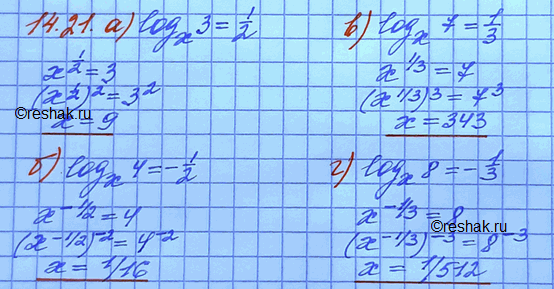 14.21. а) log_x 3 = 1/2
x^(1/2) = 3
(x^(1/2))^2 = 3^2
x = 9
©reshak.ru
в) log_x 7 = 1/3
x^(1/3) = 7
(x^(1/3))^3 = 7^3
x = 343
б) log_x 4 = -1/2
x^(-1/2) = 4
(x^(-1/2))^(-2) = 4^(-2)
x = 1/16
г) log_x 8 = -1/3
x^(-1/3) = 8
(x^(-1/3))^(-3) = 8^(-3)
x = 1/512
©reshak.ru